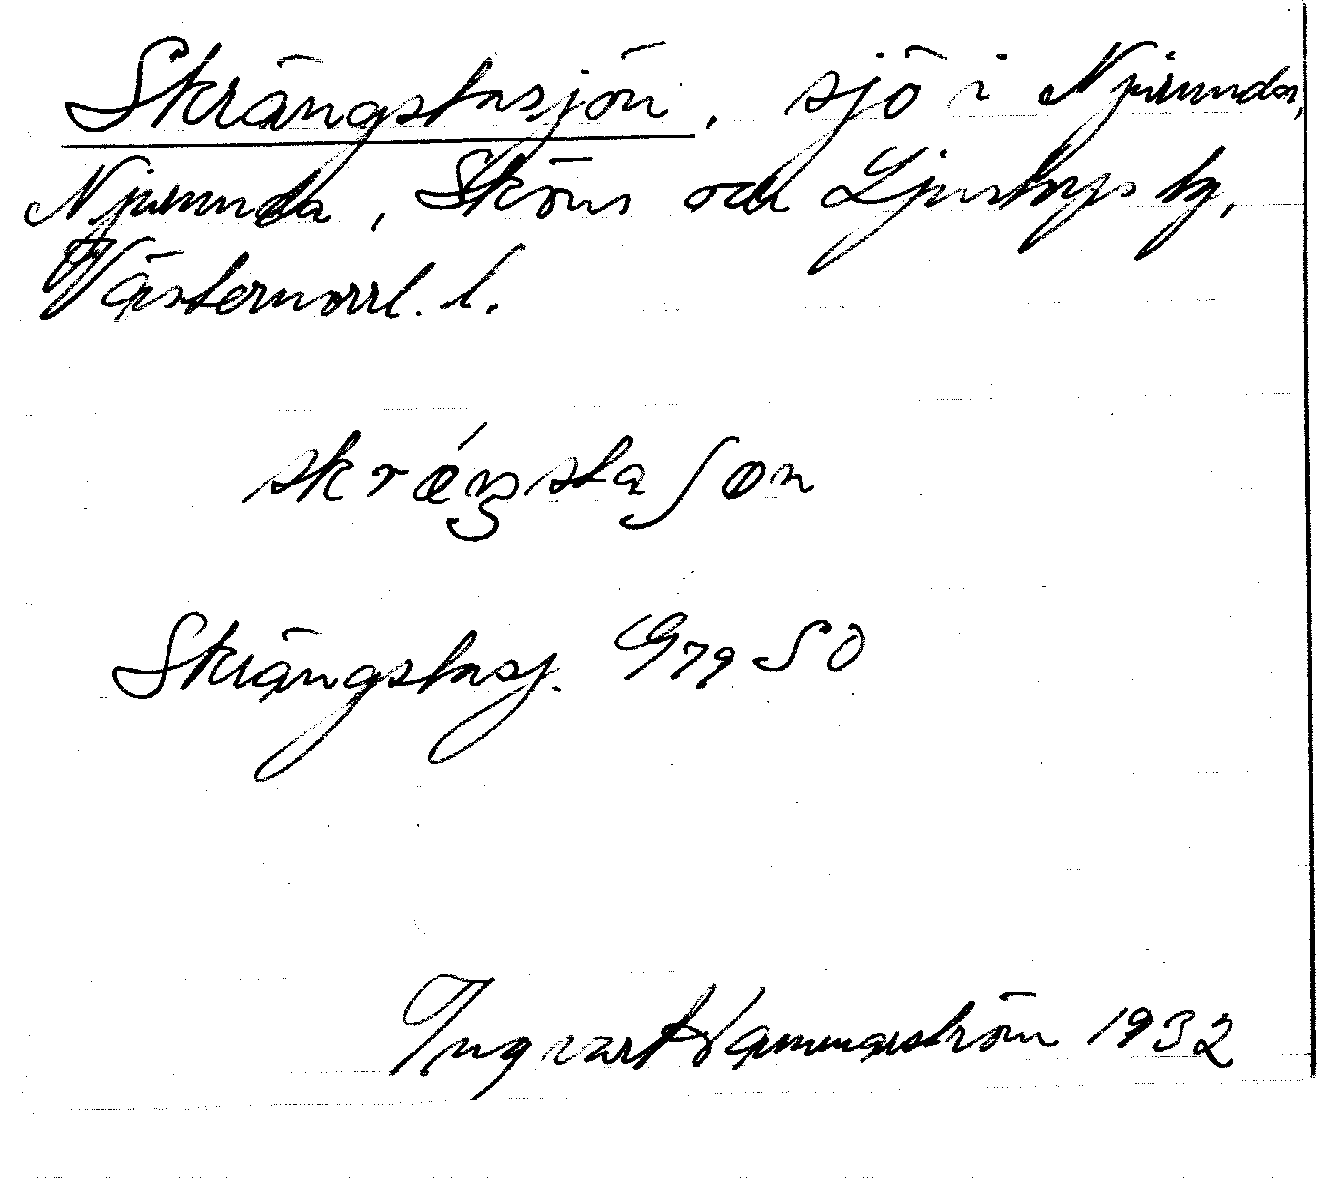 Skrängstasjön, sjö i Njurunda,
Njurunda, Sköns och Ljustorps tg,
Västernorrl. l.
skrǽŋstaʃøn
Skrängstasj. G79 SO
Ingvar Hammarström 1932